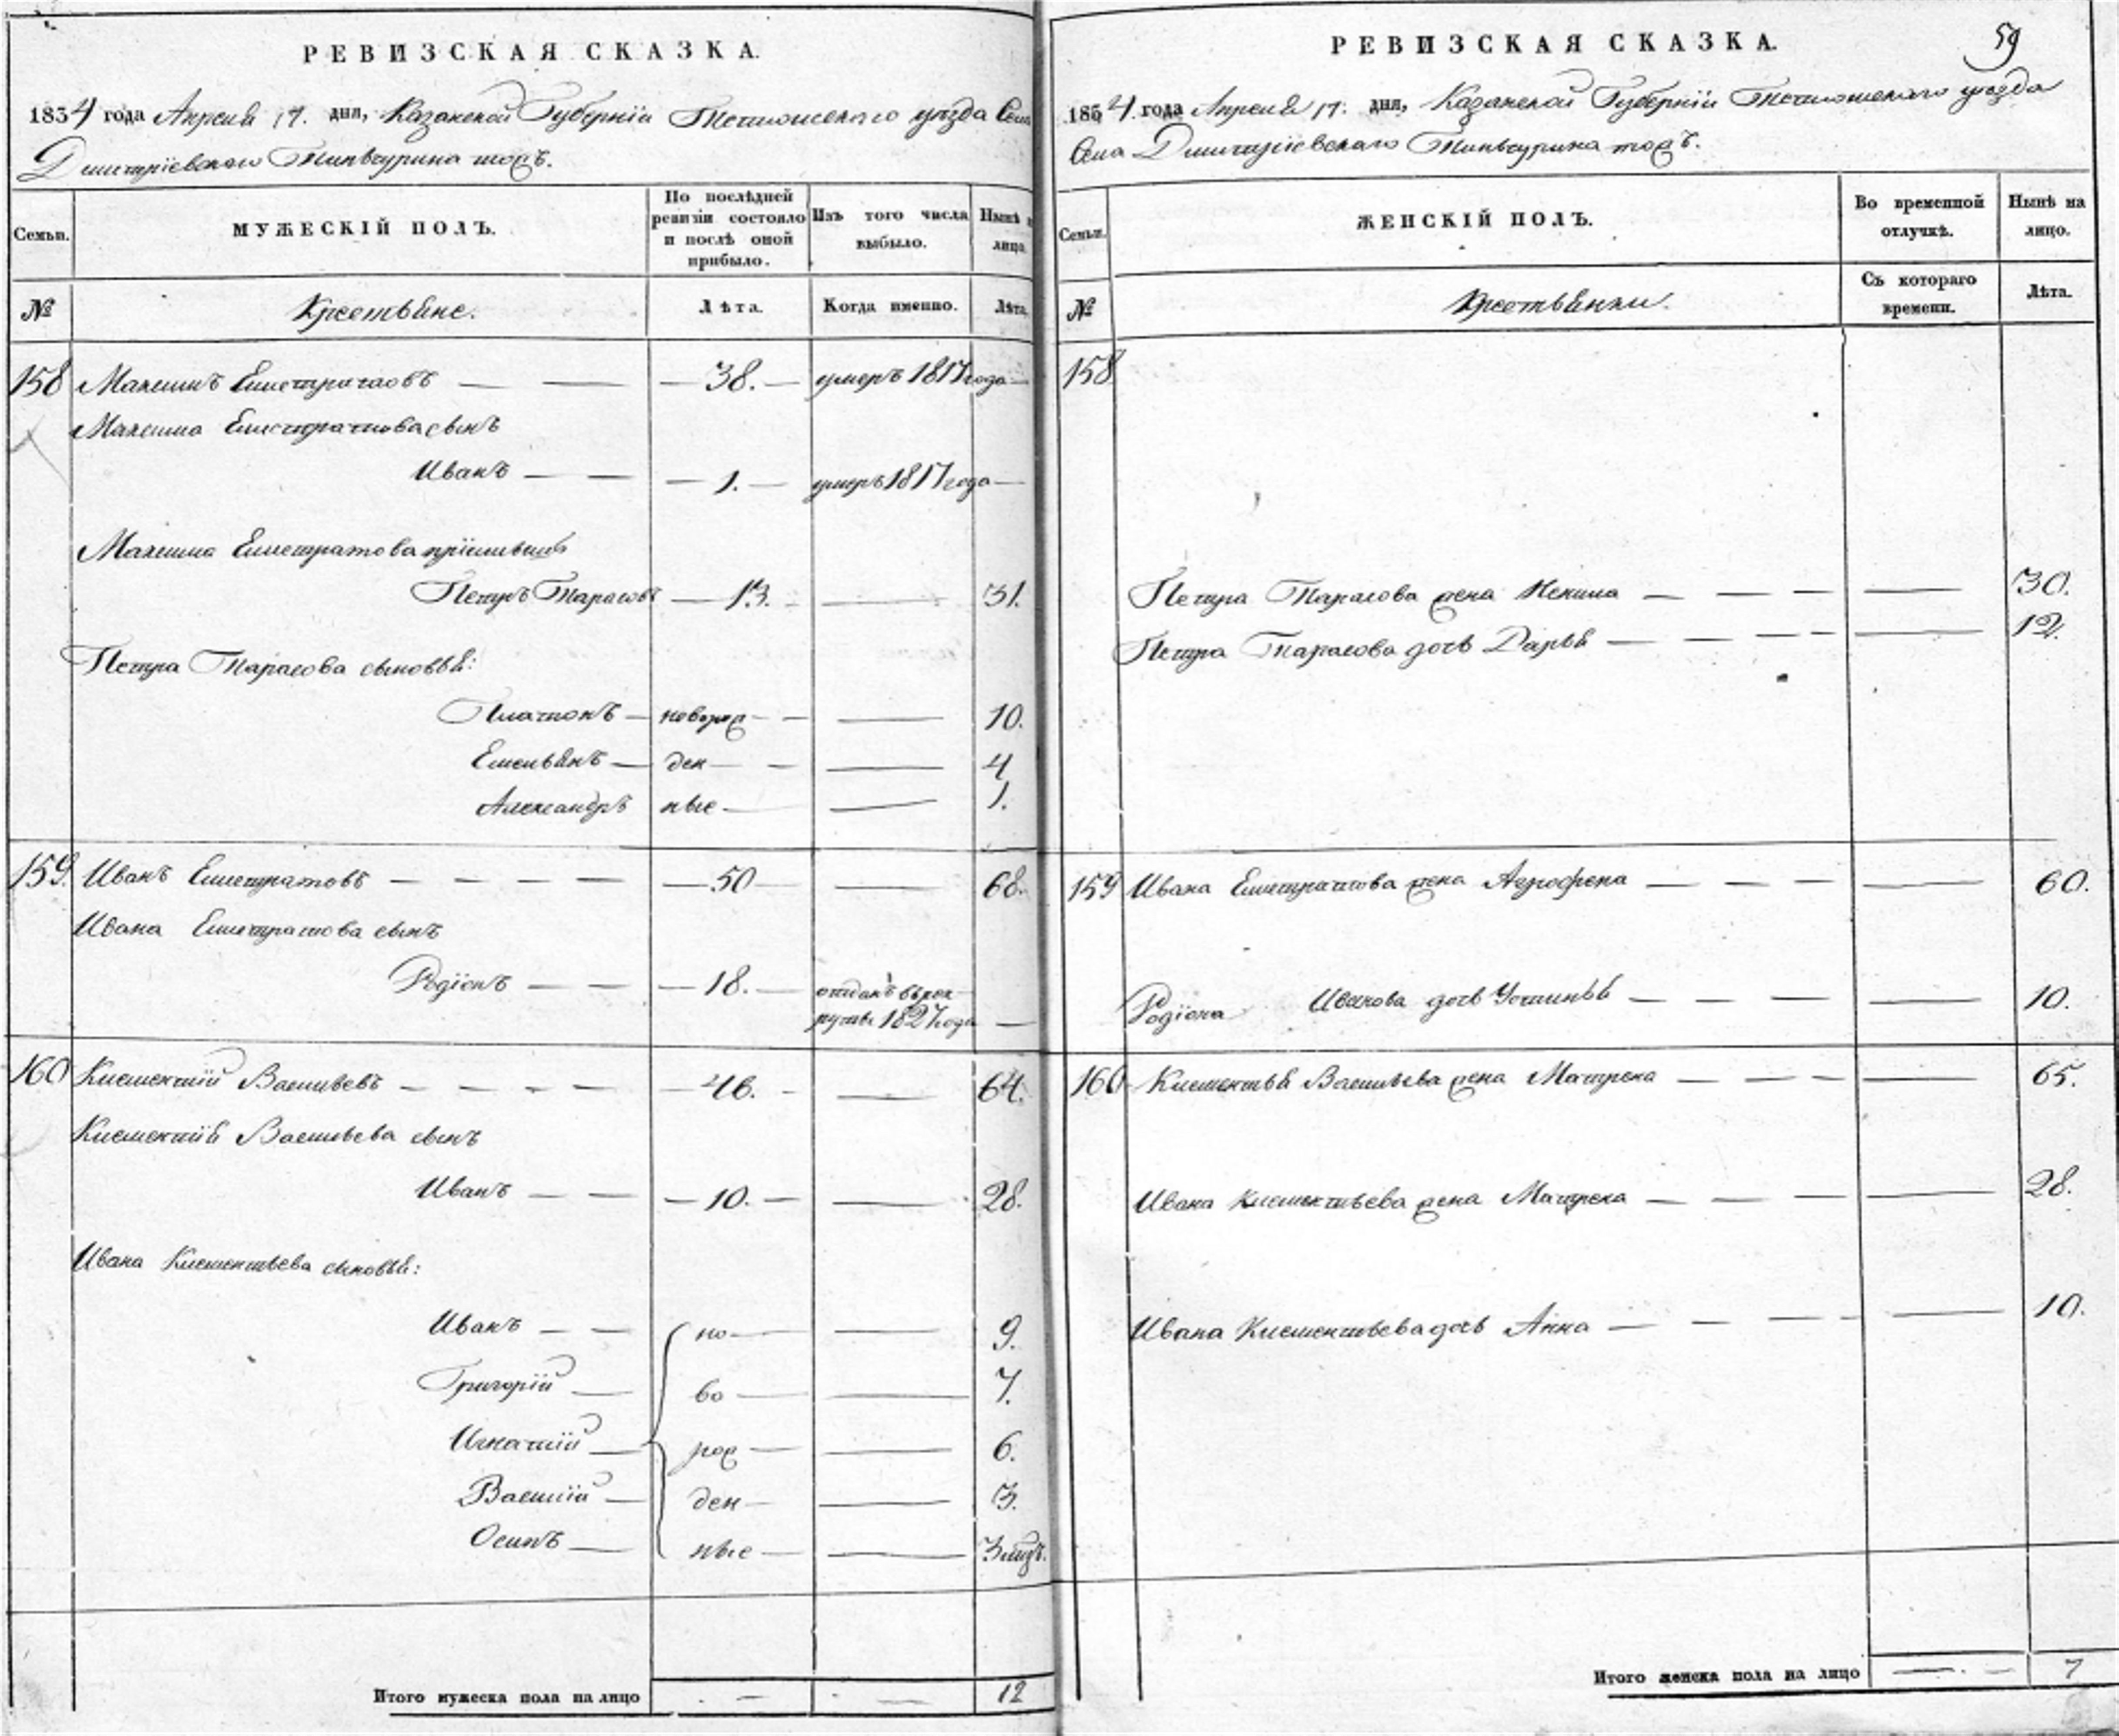 РЕВИЗСКАЯ СКАЗКА.
1834 года Апреля 17. дня, Казанской Губернiи Тетюшскаго уѣзда Села
Дмитрiевскаго Тиньчурина тожъ.
Семьи.
МУЖЕСКIЙ ПОЛЪ.
По послѣдней ревизiи состояло и послѣ оной прибыло.
Изъ того числа выбыло.
Нынѣ на лицо.
№
Крестьяне.
Лѣта.
Когда именно.
Лѣта.
158 Максимъ Емистратовъ — 38. — умеръ 1817 года —
Максима Емистратова сынъ
Иванъ — 1. — умеръ 1817 года —
Максима Емистратова прiимышъ
Петръ Тарасовъ — 13. — 31.
Петра Тарасова сыновья:
Платонъ — новорож — 10.
Емельянъ — ден — 4
Александръ ные — 1.
159. Иванъ Емистратовъ — 50 — 68.
Ивана Емистратова сынъ
Родiонъ — 18. — отданъ въ рек
руты 1827 года —
160 Климентiй Васильевъ — 46. — 64.
Климентiя Васильева сынъ
Иванъ — 10. — 28.
Ивана Климентьева сыновья:
Иванъ — но — 9.
Григорiй — во — 7.
Игнатiй — рож — 6.
Василiй — ден — 3.
Осипъ — ные — 3 мѣц.
Итого мужеска пола на лицо — 12
РЕВИЗСКАЯ СКАЗКА.
59
1834. года Апреля 17. дня, Казанской Губернiи Тетюшскаго уѣзда
Села Дмитрiевскаго Тиньчурина тожъ.
Семьи.
ЖЕНСКIЙ ПОЛЪ.
Во временной отлучкѣ.
Нынѣ на лицо.
№
Крестьянки.
Съ котораго времени.
Лѣта.
158
Петра Тарасова жена — 30.
Петра Тарасова дочь Дарья — 12.
159 Ивана Емистратова жена Аграфена — 60.
Родiона Иванова дочь Устинья — 10.
160 Климентья Васильева жена Матрена — 65.
Ивана Климентьева жена Матрена — 28.
Ивана Климентьева дочь Анна — 10.
Итого женска пола на лицо — 7